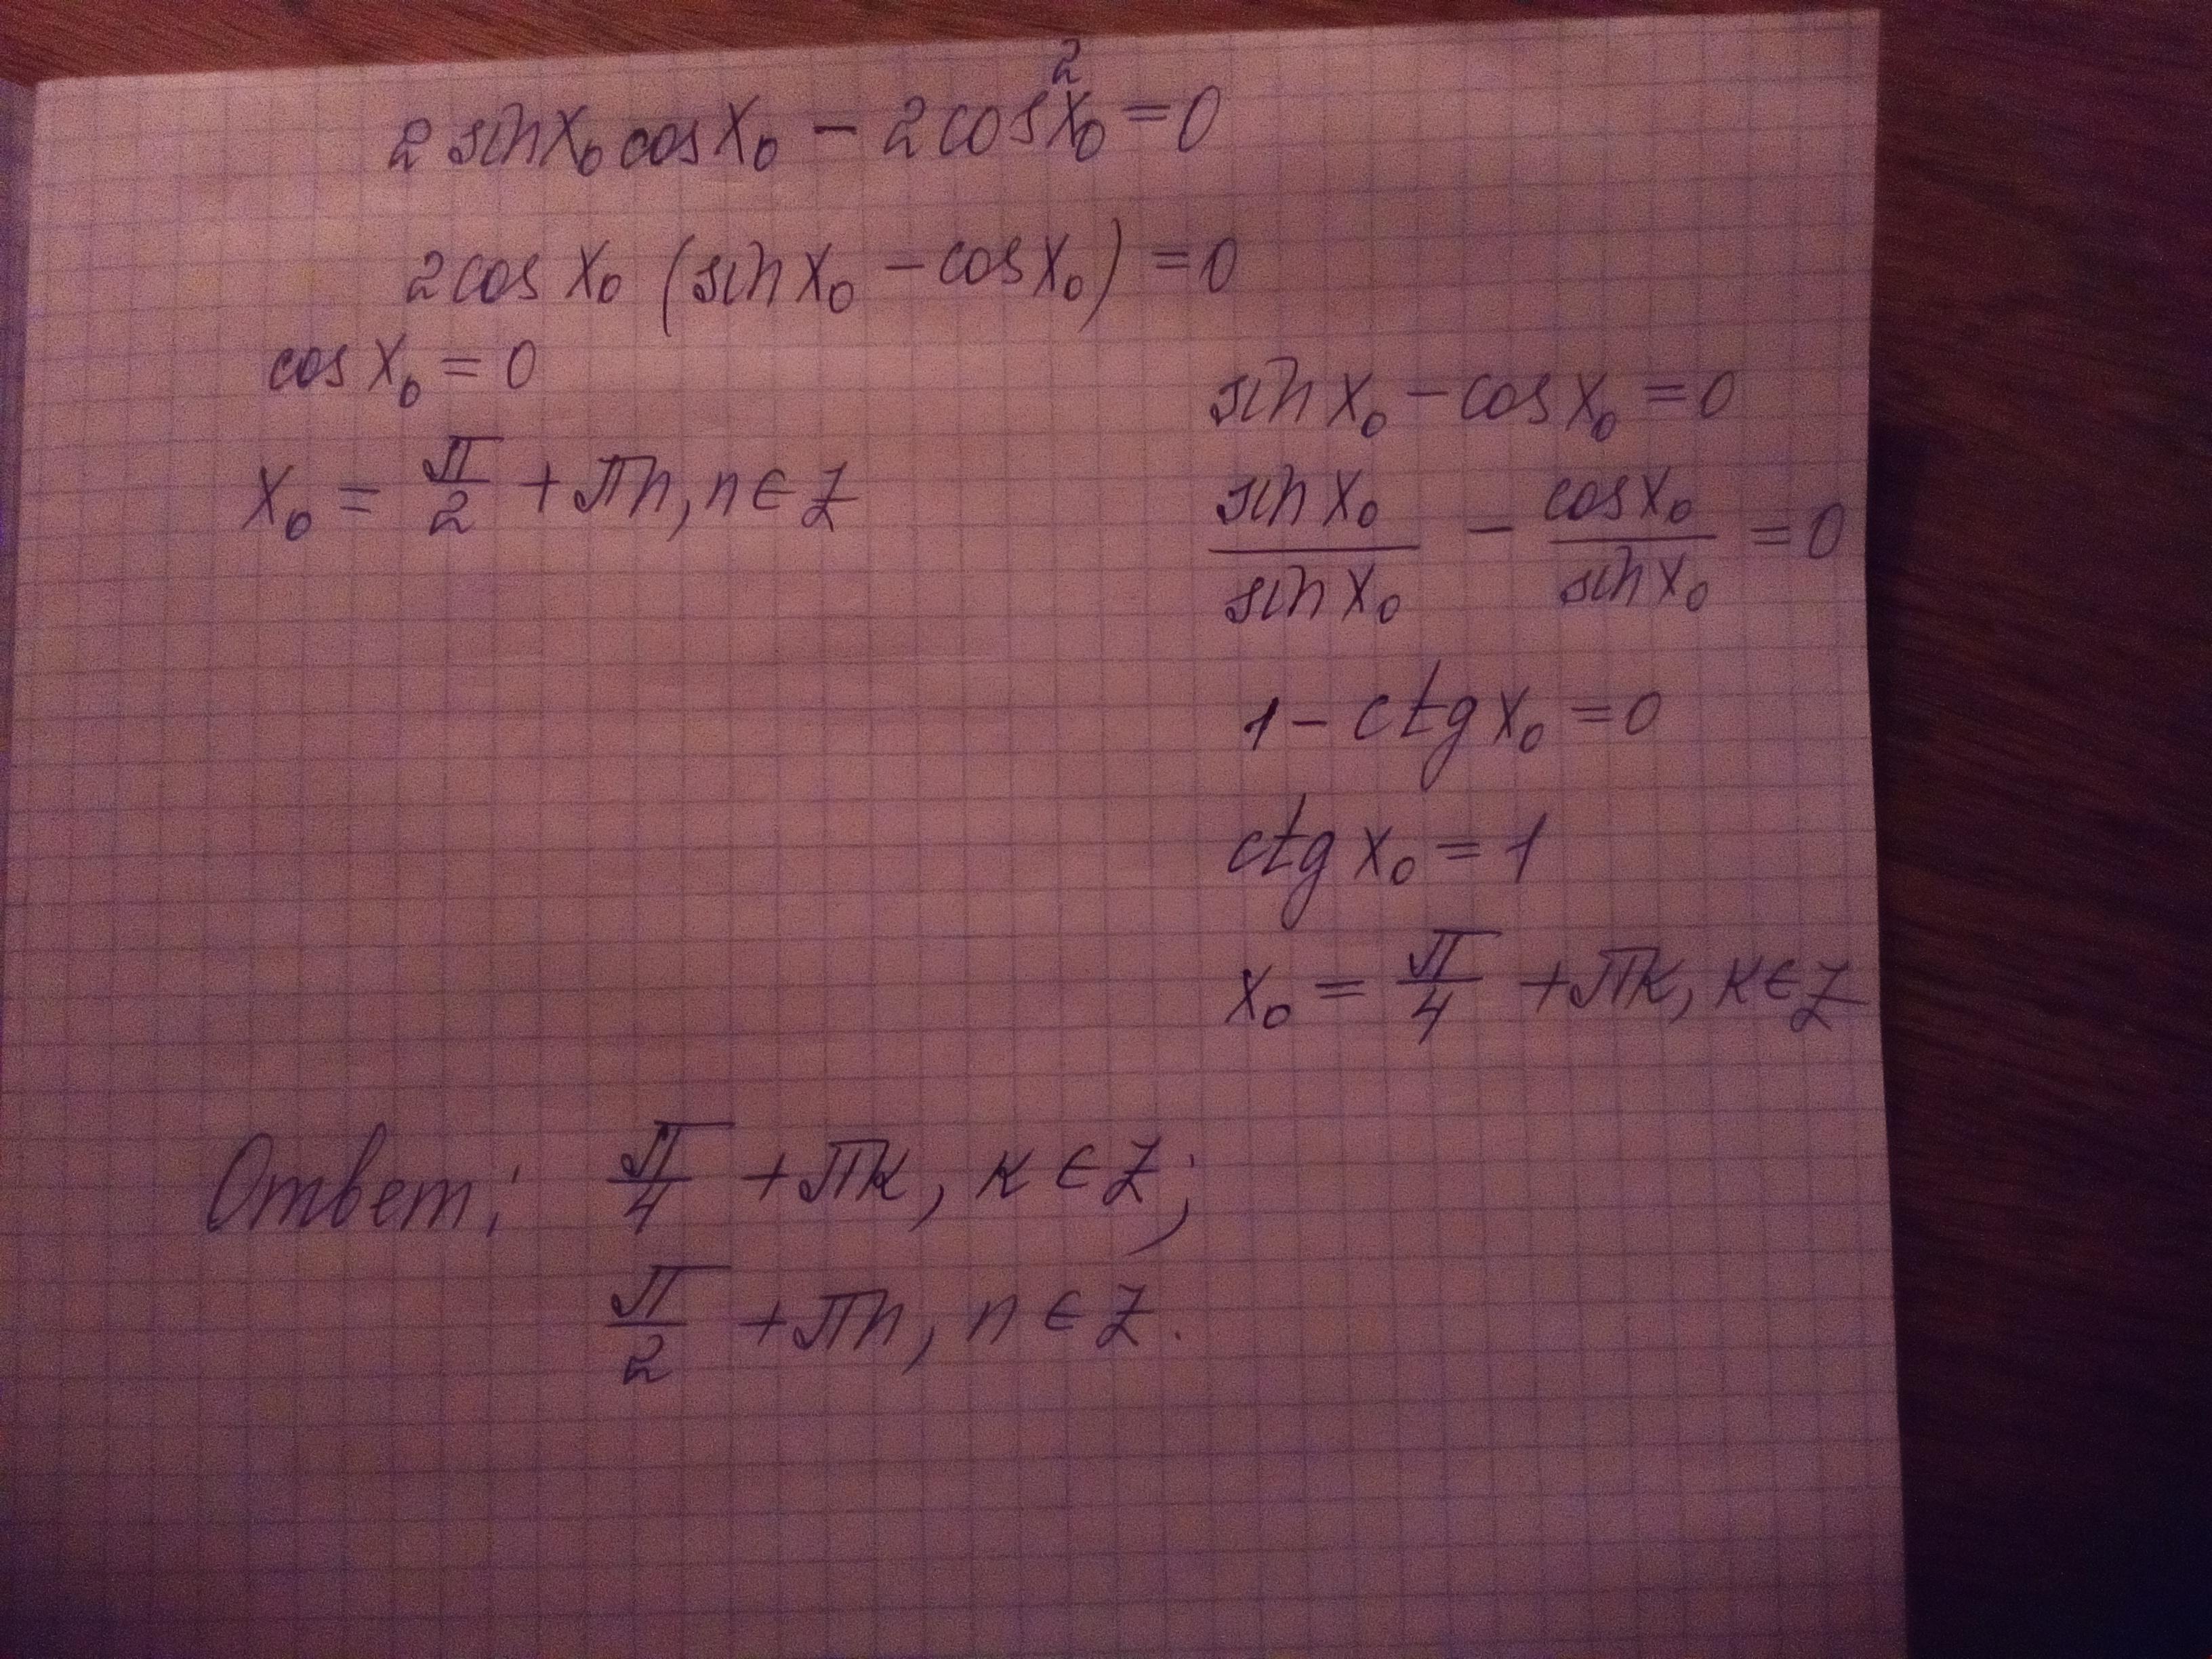 2 sin x₀ cos x₀ − 2 cos² x₀ = 0
2 cos x₀ (sin x₀ − cos x₀) = 0
cos x₀ = 0
x₀ = π/2 + πn, n ∈ Z
sin x₀ − cos x₀ = 0
sin x₀/sin x₀ − cos x₀/sin x₀ = 0
1 − ctg x₀ = 0
ctg x₀ = 1
x₀ = π/4 + πк, к ∈ Z
Ответ: π/4 + πк, к ∈ Z;
π/2 + πn, n ∈ Z.